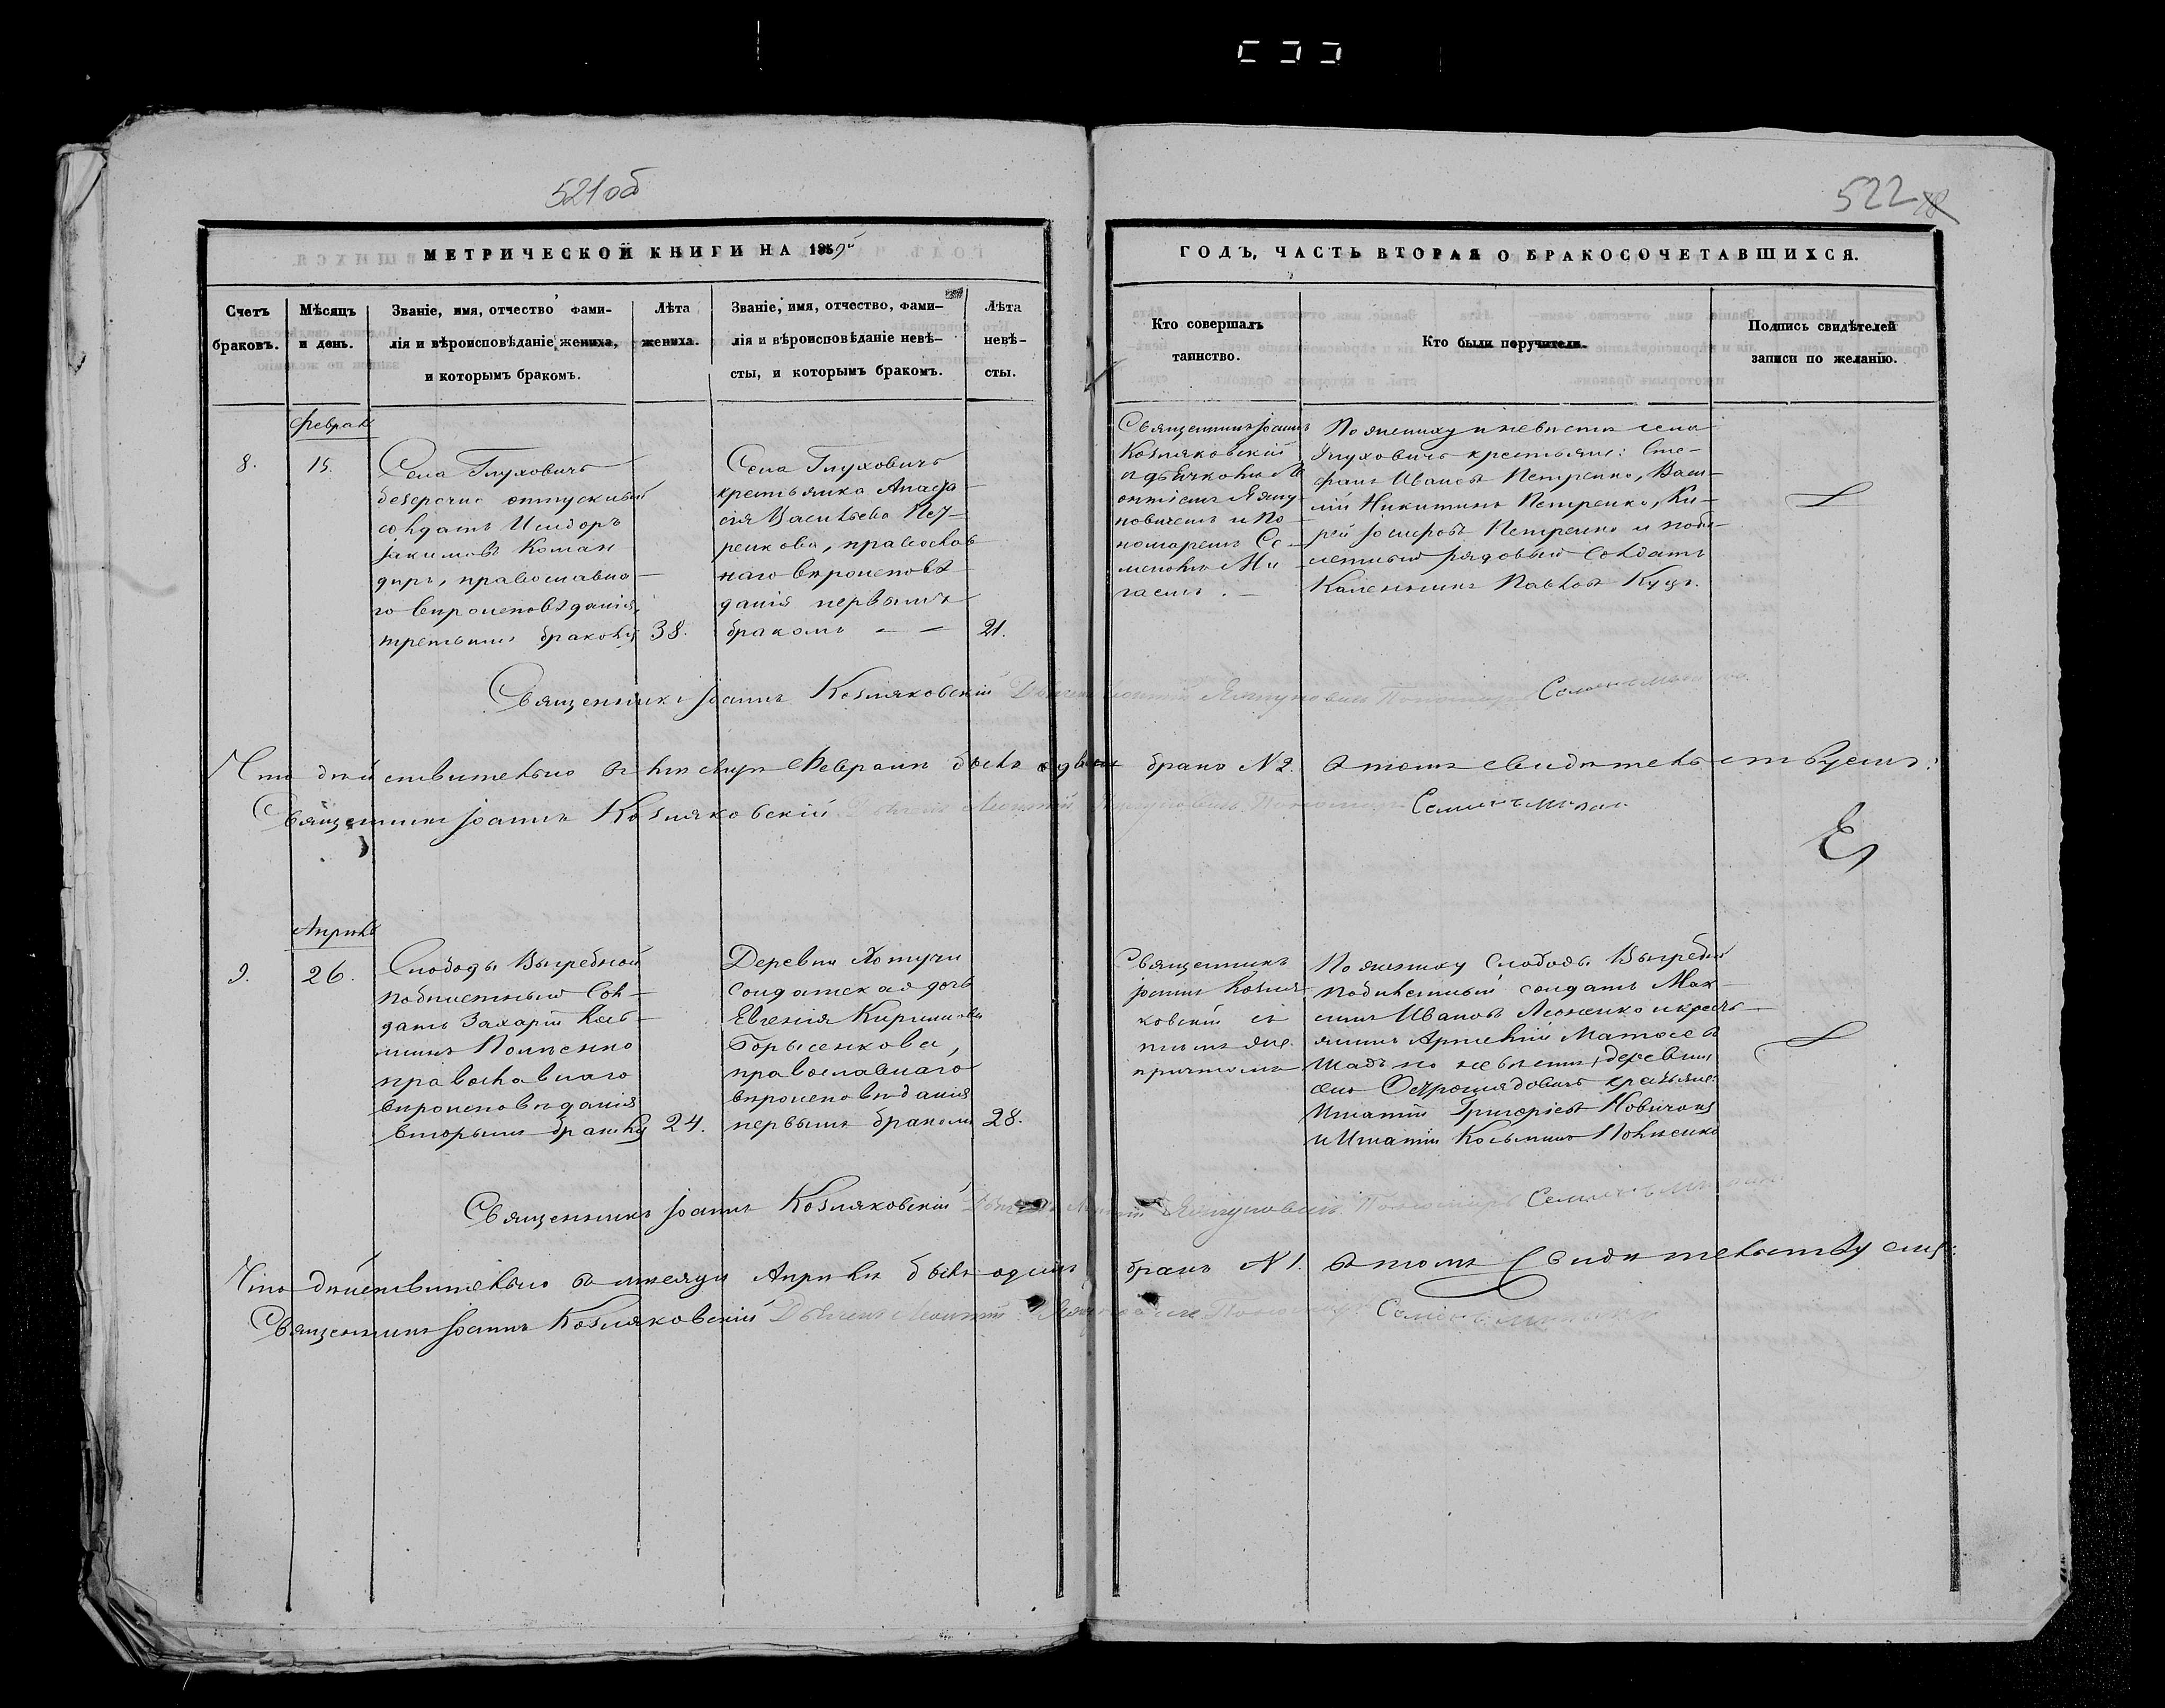 521 об
522
МЕТРИЧЕСКОЙ КНИГИ НА 1859й
ГОДЪ, ЧАСТЬ ВТОРАЯ О БРАКОСОЧЕТАВШИХСЯ.
Счетъ браковъ.
Мѣсяцъ и день.
Званіе, имя, отчество фами-
лія и вѣроисповѣданіе жениха,
и которымъ бракомъ.
Лѣта
жениха.
Званіе, имя, отчество, фами-
лія и вѣроисповѣданіе невѣ-
сты, и которымъ бракомъ.
Лѣта
невѣ-
сты.
Кто совершалъ
таинство.
Кто были поручители.
Подпись свидѣтелей
записи по желанію.
Феврал
8.
15.
Села Глуховичъ
безсрочно отпускный
солдатъ Исидоръ
Іакимовъ Коман
диръ, православна-
го вѣроисповѣданія,
третьимъ бракомъ
38.
Села Глуховичъ
крестьянка Анаста
сія Васильева Пет-
ренкова, православ
наго вѣроисповѣ-
данія первымъ
бракомъ — —
21.
Священникъ Іоаннъ
Козляковскій
съ дьячкомъ Ле
онтіемъ
новичемъ и по-
номаремъ Се-
меномъ Ми
гаемъ. —
По жениху и невѣстѣ села
Глуховичъ крестьяне: Сте-
фанъ Ивановъ Петренко, Васи-
лій Никитинъ Петренко, Ки-
рей Іосифовъ Петренко и тоби-
летный рядовый солдатъ
Каленникъ Павловъ Куцъ.
Священникъ Іоаннъ Козляковскій Дьячекъ Леонтій Пономарь Семенъ
Что дѣйствительно въ мѣсяцѣ Февралѣ было два брака N 2. въ томъ свидѣтельствуемъ:
Священникъ Іоаннъ Козляковскій Леонтій Семенъ
Апрѣль
9.
26.
Слободы Выгребной
побилетный сол-
датъ Захарій Кось-
минъ
православнаго
вѣроисповѣданія
вторымъ бракомъ
24.
Деревни Хотучи
солдатская дочь
Евгенія Кириллова
Борысенкова,
православнаго
вѣроисповѣданія
первымъ бракомъ
28.
Священникъ
Іоаннъ Козля-
ковскій съ
тѣмъ же
причтомъ
По жениху Слободы Выгребной
побилетный солдатъ Мак-
симъ Ивановъ Леоненко и крест-
янинъ Матвеевъ
по невѣстѣ, деревни
крестьяне:
Игнатій Григоріевъ Новичокъ
и Игнатій Косьминъ
Священникъ Іоаннъ Козляковскій Дьячекъ Леонтій Пономарь Семенъ
Что дѣйствительно въ мѣсяцѣ Апрѣлѣ былъ одинъ бракъ N 1. въ томъ свидѣтельствуемъ:
Священникъ Іоаннъ Козляковскій Дьячекъ Леонтій Пономарь Семенъ